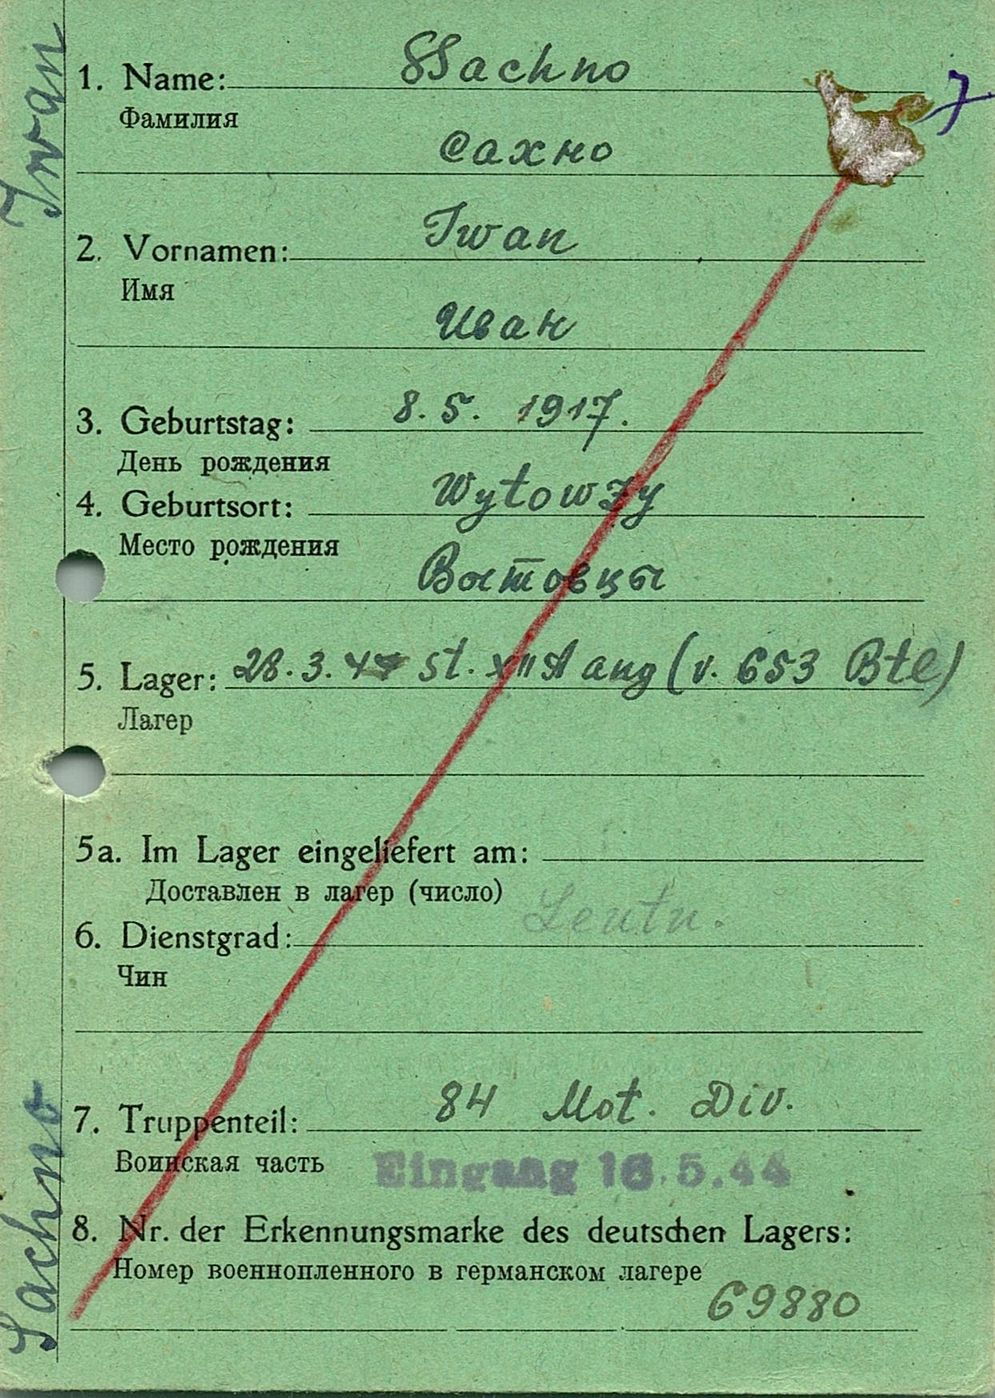 1. Name: SSachno
Фамилия
Сахно
7
Iwan
2. Vornamen: Iwan
Имя
Иван
3. Geburtstag: 8. 5. 1917.
День рождения
4. Geburtsort: Wytowzy
Место рождения
Вытовцы
5. Lager: 28.3.44 St. XII A ang (v. 653 Btl)
Лагер
5a. Im Lager eingeliefert am:
Доставлен в лагер (число)
Leutn.
6. Dienstgrad:
Чин
7. Truppenteil: 84 Mot. Div.
Воинская часть
Eingang 16.5.44
8. Nr. der Erkennungsmarke des deutschen Lagers:
Номер военнопленного в германском лагере
69880
Sachno